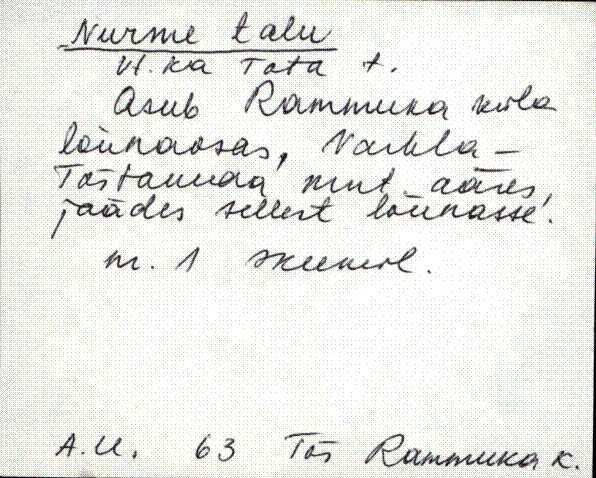 Nurme talu
Vt. ka Tota t.
Asub Rammuka küla
lõunaosas, Varbla-
Tõstamaa mnt. ääres,
jäädes sellest lõunasse.
nr. 1 skeemil.
A.U. 63 Tõs Rammuka k.